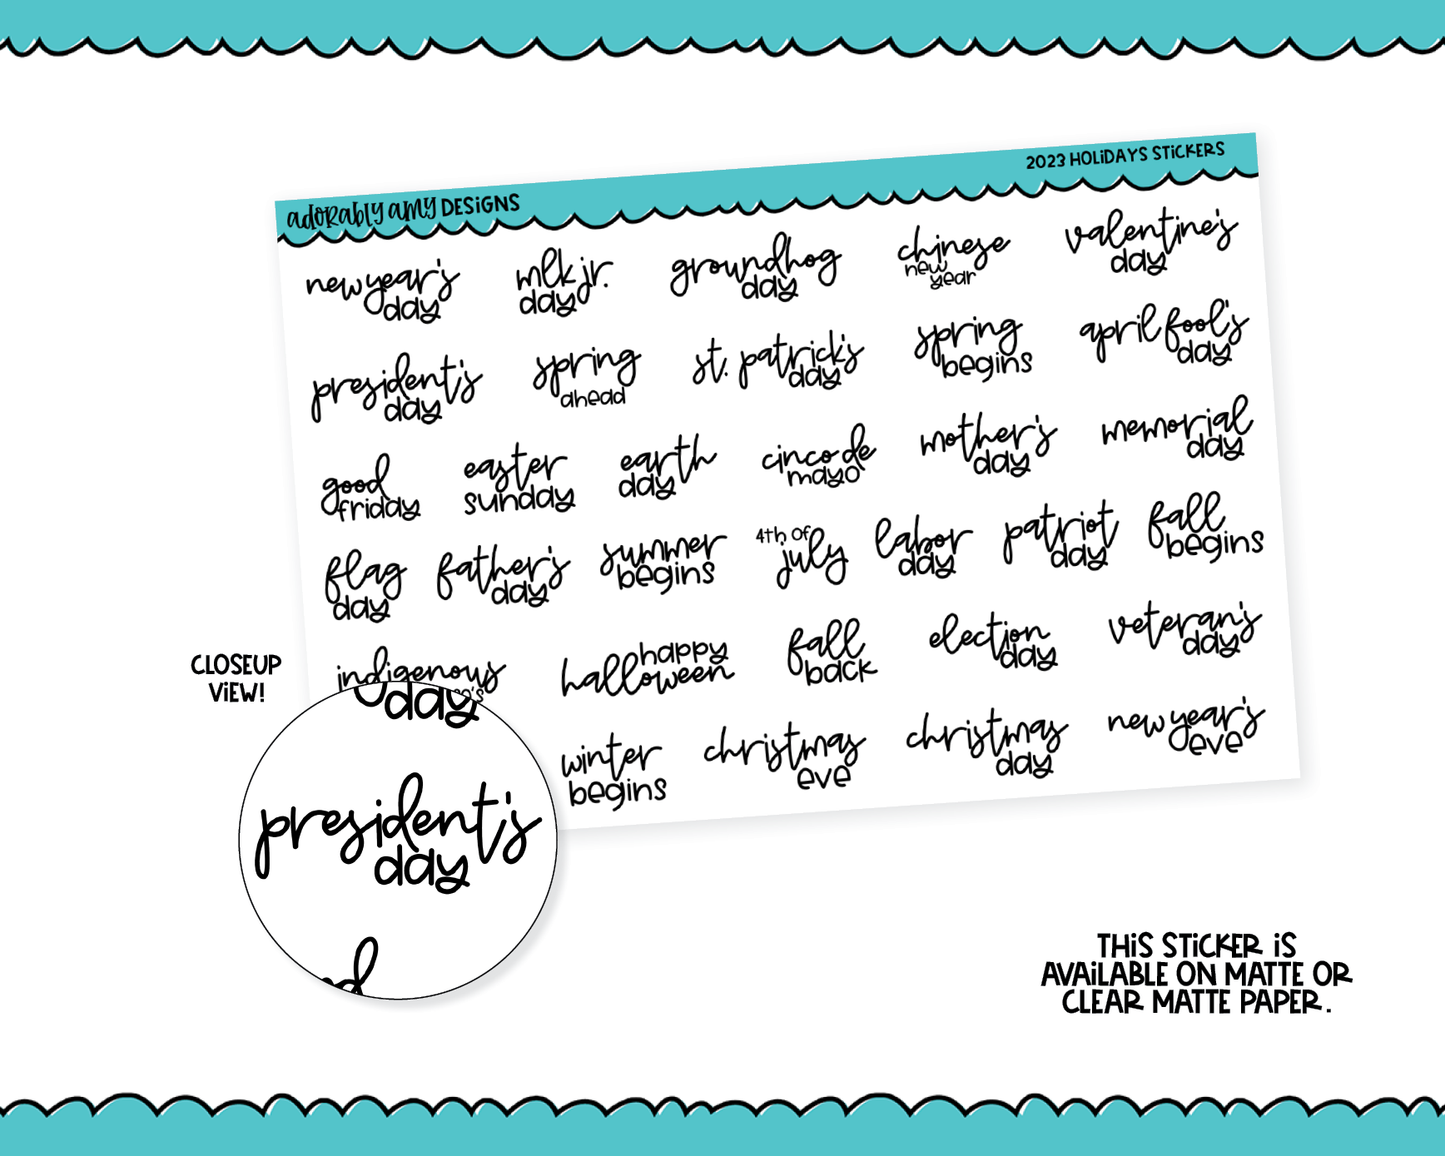 adorably amy designs
2023 Holidays Stickers
new year's day
mlk jr. day
groundhog day
chinese new year
valentine's day
president's day
spring ahead
st. patrick's day
spring begins
april fool's day
good friday
easter sunday
earth day
cinco de mayo
mother's day
memorial day
flag day
father's day
summer begins
4th of july
labor day
patriot day
fall begins
indigenous
happy halloween
fall back
election day
veteran's day
winter begins
christmas eve
christmas day
new year's eve
CLOSEUP
VIEW!
day
president's
day
THIS STICKER IS
AVAILABLE ON MATTE OR
CLEAR MATTE PAPER.